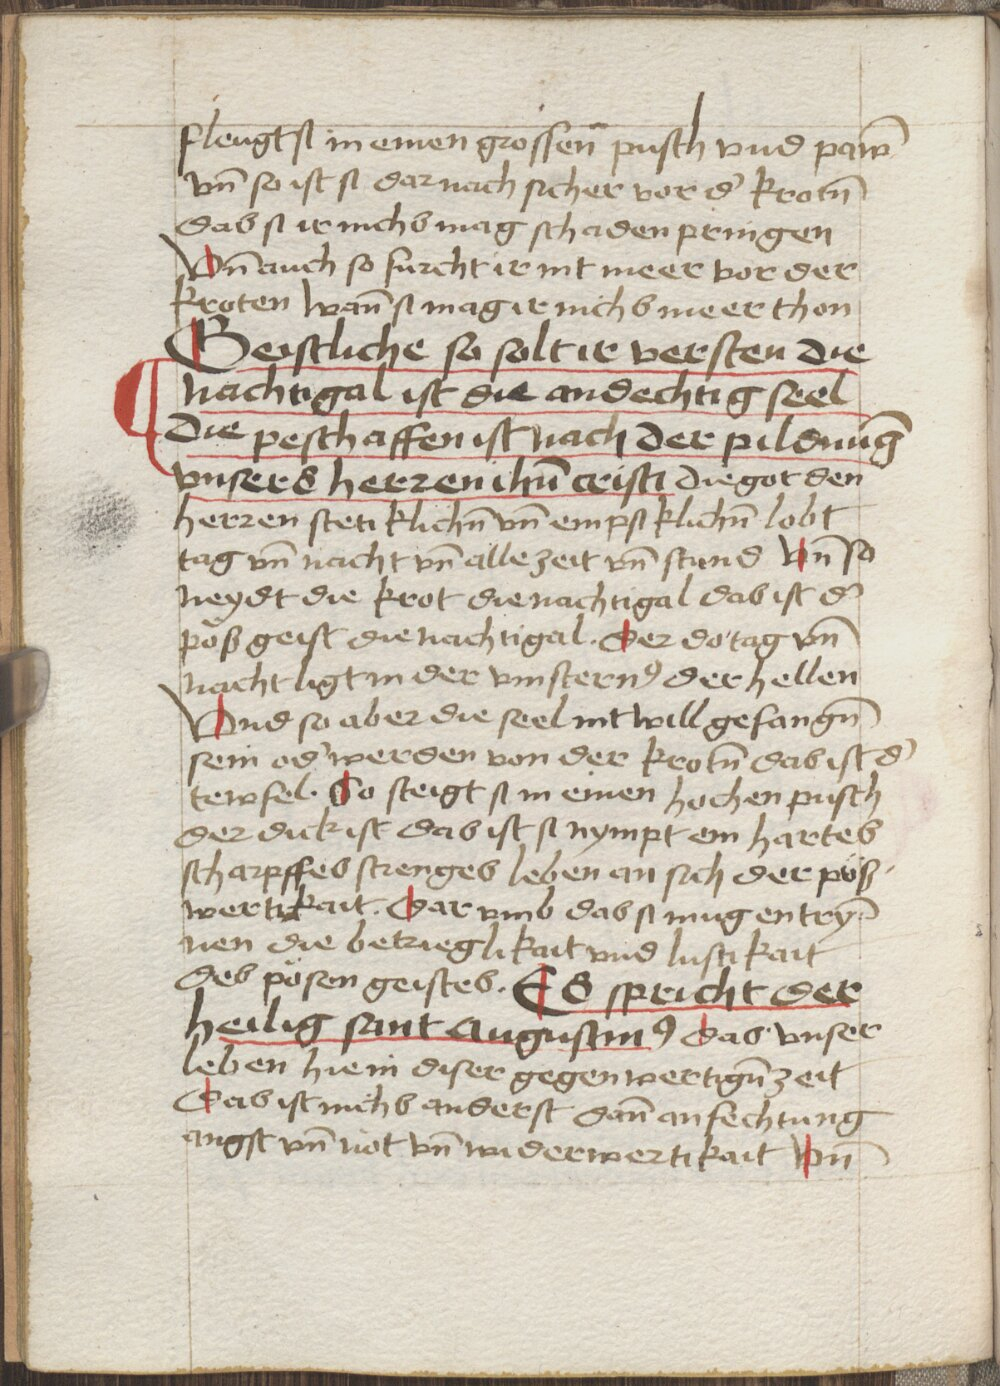 fleugt si in einen grossen̄ pusch vnd paw̄
vn̄ so ist si dar nach sicher vor d' krotn̄
das si ir nichs mag schaden pringen
Vn̄ auch so furcht ir nit meer vor der
kroten wan̄ si mag ir nichs meer thon
Geistliche so solt ir versten die
nachtigal ist die andechtig seel
die peschaffen ist nach der pildnūg
vnsers herren ihū cristi die got den
herren stetiklichn̄ vn̄ empsiklichn̄ lobt
tag vn̄ nacht vn̄ alle zeit vn̄ stund Vn̄ so
neydt die krot die nachtigal das ist d'
pöß geist die nachtigal. Der do tag vn̄
nacht ligt in der vinsternꝰ der hellen
Vnd so aber die seel nit will gefangn̄
sein od' werden von der krotn̄ das ist d'
tewfel. So steigt si in einen hochen pusch
der dick ist das ist si nympt ein hartes
scharpffes strenges leben an sich der pöß
wertikait. Dar vmb das si mug entryn̄
nen die betrieglikait vnd lustikait
des pösen geistes. Es spricht der
heilig sant Augustinꝰ das vnser
leben hie in diser gegenwertign̄ zeit
Das ist nichs anderst dan̄ anfechtung
angst vn̄ not vn̄ widerwertikait Vn̄